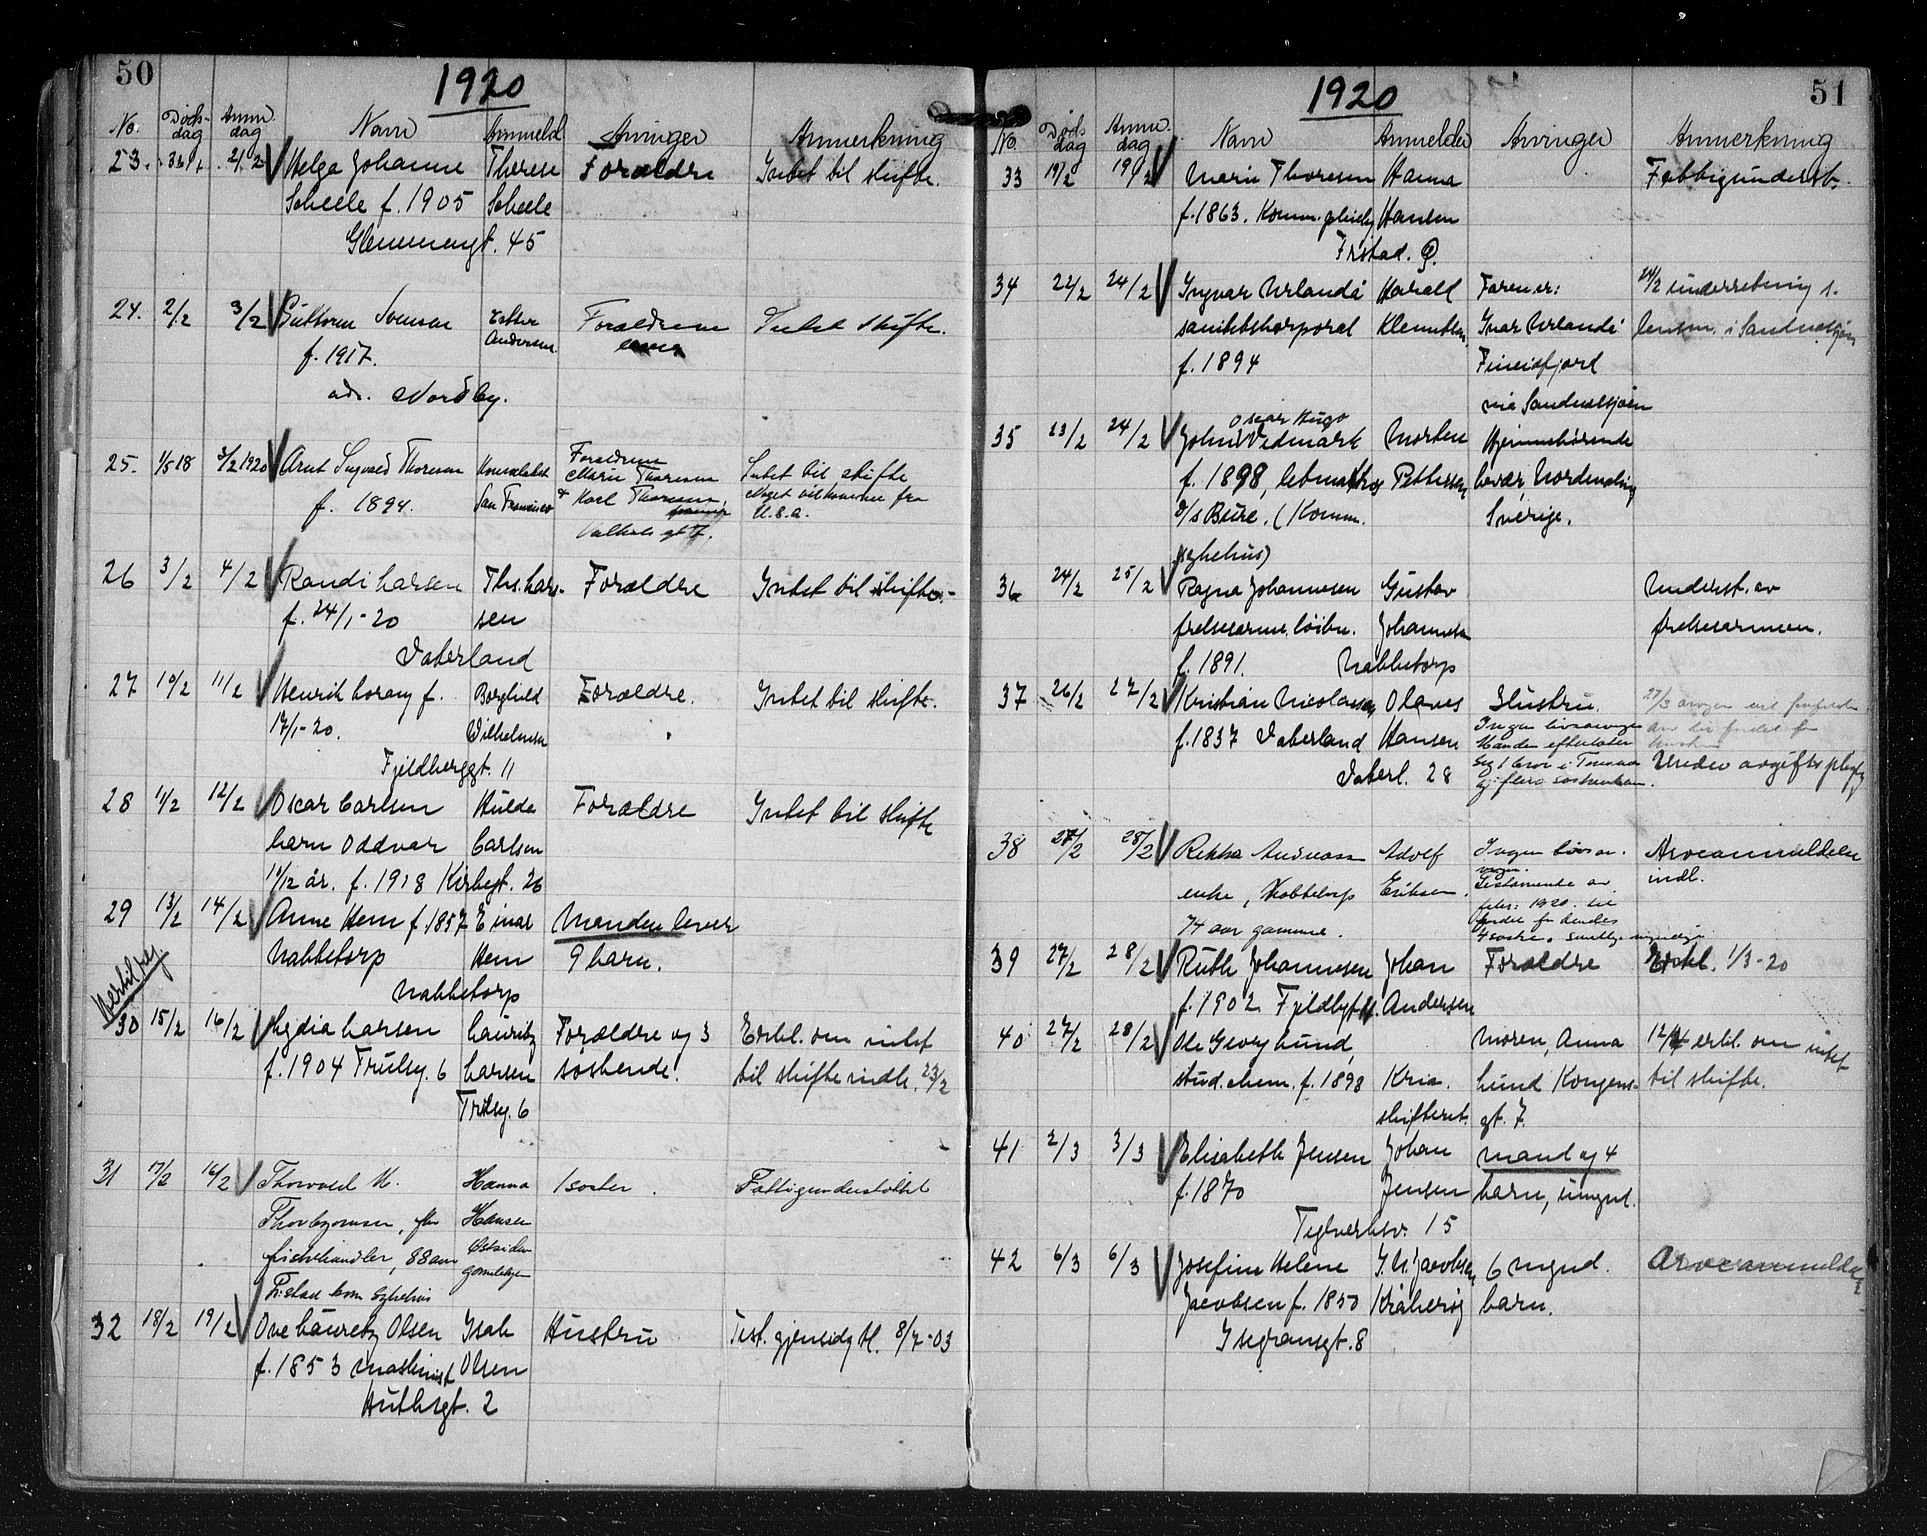 50
1920
No. Døds- Anm. Navn Anmeld. Arvinger Anmerkning
dag dag
23. 31/1. 2/2 Helga Johanne Therese Forældre Intet til skifte.
Scheele f. 1905 Scheele
Glemmengt. 45
24. 2/2 3/2 Guttorm Svensen Esther Forældrene Intet skifte.
f. 1917. Andersen
adr. Nordby.
25. 1/5 18 3/2 1920 Arnt Sigvald Thoresen Konsulatet Forældrene Intet til skifte
f. 1894. San Francisco Marie Thoresen Noget tilkomme fra
& Karl Thoresen, U.S.A.
Valhals gt 7.
26 3/2 4/2 Randi Larsen Ths. Lars- Forældre Intet til skifte.-
f. 24/1-20 sen
Vaterland
27 10/2 11/2 Henrik Lorang f. Borghild Forældre. Intet til skifte.
17/1-20. Wilhelmsen
Fjeldberggt. 11
28 11/2 12/2 Oscar Carlsen Hulda Forældre Intet til skifte
barn Oddvar Carlsen
1 1/12 år. f. 1918 Kirkegt. 26
29 13/2 14/2 Anne Hem f 1857 Einar Manden lever
Nabbetorp Hem 9 barn.
Nabbetorp
30 15/2 16/2 Lydia Larsen Lauritz Forældre og 3 Erkl. om intet
f. 1904 Trulsg. 6 Larsen søskende. til skifte indk. 23/2
Trulsg. 6
31 17/2 16/2 Thorvald M. Hanna 1 søster. Fattigunderstøttet
Thorbjørnsen, fhv Hansen
fiskehandler, 88 aar Østsiden
Fr.stad kom. sykehus gamlehjem
32 18/2 19/2 Ove Lauretz Olsen Isak Hustru Test. gjensidig bl. 8/7-03
f. 1853 maskinist Olsen
Huthsgt. 2
51
1920
No Døds Anm. Navn Anmelder Arvinger Anmerkning
dag dag
33 19/2 19/2 Marie Thoresen Hanna Fattigunderst.
f. 1863. Komm. pleiehj Hansen
Frstad. Ø.
34 22/2 24/2 Ingvar Urlandå Harald Faren er: 24/2 underretning t.
sanitetskorporal Klemetsen Ivar Urlandå lensm. i Sandnessjøen
f. 1894 Fineisfjord
via Sandnessjøen
35 23/2 24/2 John Oscar Hugo Vedmark Morten Hjemmehørende
f. 1898, letmatros Pettersen Levær, Nordmaling
D/s Bure. (Komm. Sverige.
sykehus)
36 24/2 25/2 Ragna Johannesen Gustav Underst. av
frelsesarme, løitn. Johannesen frelsesarmeen.
f. 1891. Nabbetorp
37 26/2 27/2 Kristian Nicolausen Olaves Hustru.
f. 1837 Vaterland Hansen Ingen livsarvinger
Vaterl. 28 Manden efterlater
sig 1 bror i
og flere søskenbarn. Under avgiftspligtig
38 27/2 28/2 Rikka Andreassen Adolf Ingen livsar- Arveanmeldelse
enke, Nabbetorp Eriksen. vinger. indl.
74 aar gammel. Testamente av
febr. 1920. til
fordel for hendes
4 søstre.
39 27/2 28/2 Ruth Johannesen Johan Forældre Erkl. 1/3-20
f. 1902 Fjeldbgt. Andersen
40 27/2 28/2 Ole Georg Lund, Moren, Anna 12/4 erkl. om intet
stud. chem. f. 1898 Kria. Lund Kongens- til skifte.
skifteret. gt. 7.
41 2/3 3/3 Elisabeth Jensen Johan mand og 4
f. 1870 Jensen barn, umynd.
Teglverksv. 15
42 6/3 6/3 Josefine Helene J. H. Jacobsen 6 mynd. Arveanmeldelse
Jacobsen f. 1850 Kråkerøy barn.
Isegransgt. 8